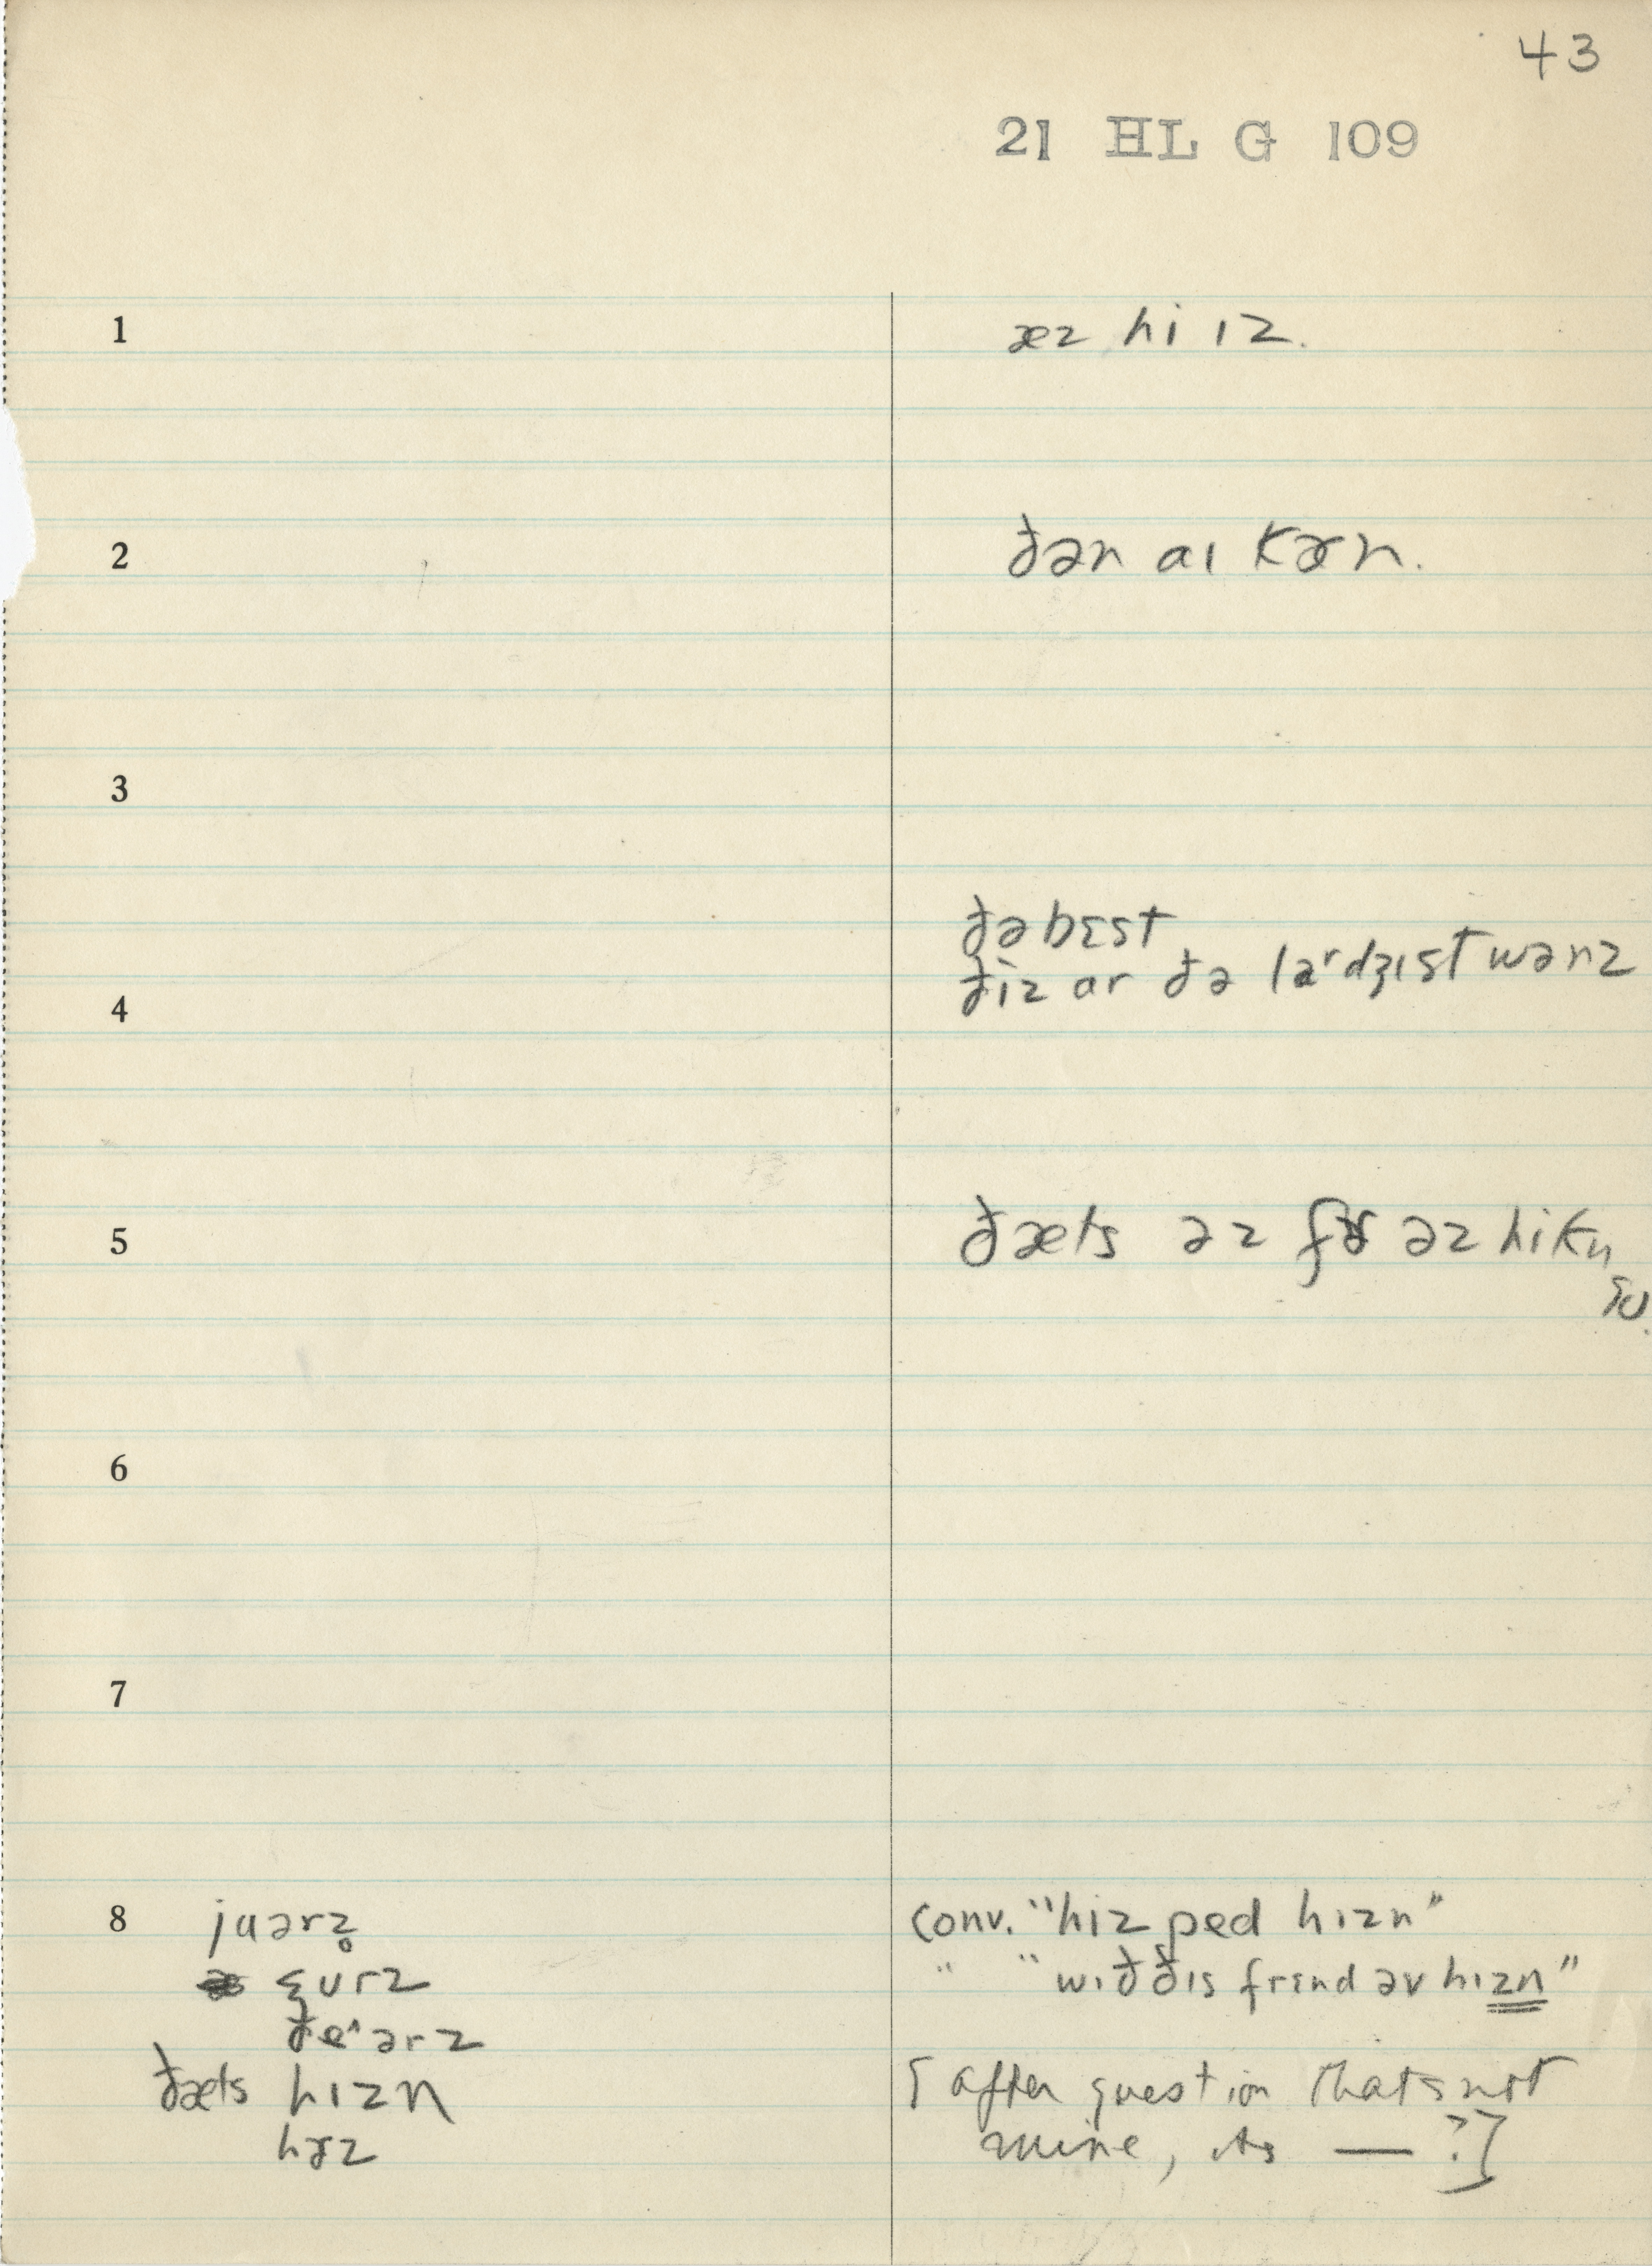 43
21 HL G 109
1 æz hi ɪz.
2 ðən aɪ kæn.
3
ðə bɛst
4 ðiz ar ðə larʳdʒɪst wənz
5 ðæts əz fɚ əz hi kn
6
7
8 juərz̥ conv. "hiz ped hɪzn"
" "wɪð ðɪs frɛnd əv hɪzn"
ðe^ərz
ðæts hɪzn [after question that's not
hɚz mine, its — ?]